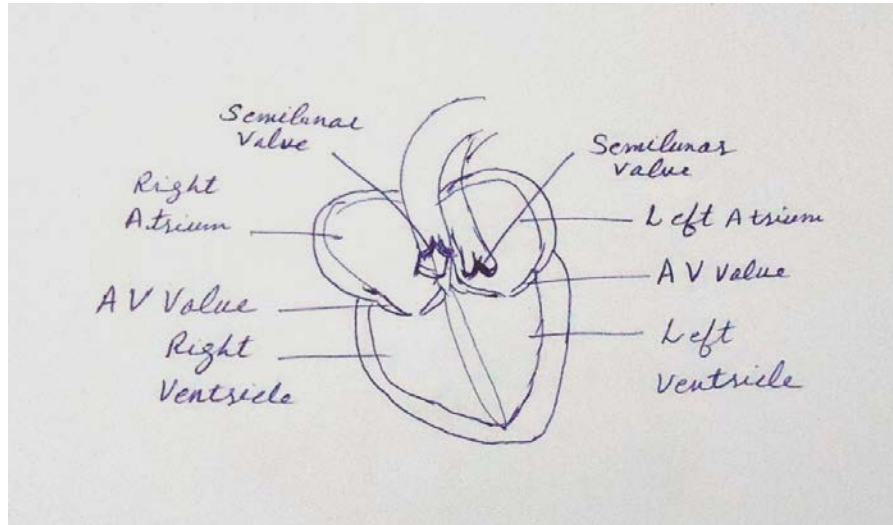 Semilunar
Value
Semilunar
Value
Right
Atrium
Left Atrium
A V Value
A V Value
Right
Ventricle
Left
Ventricle